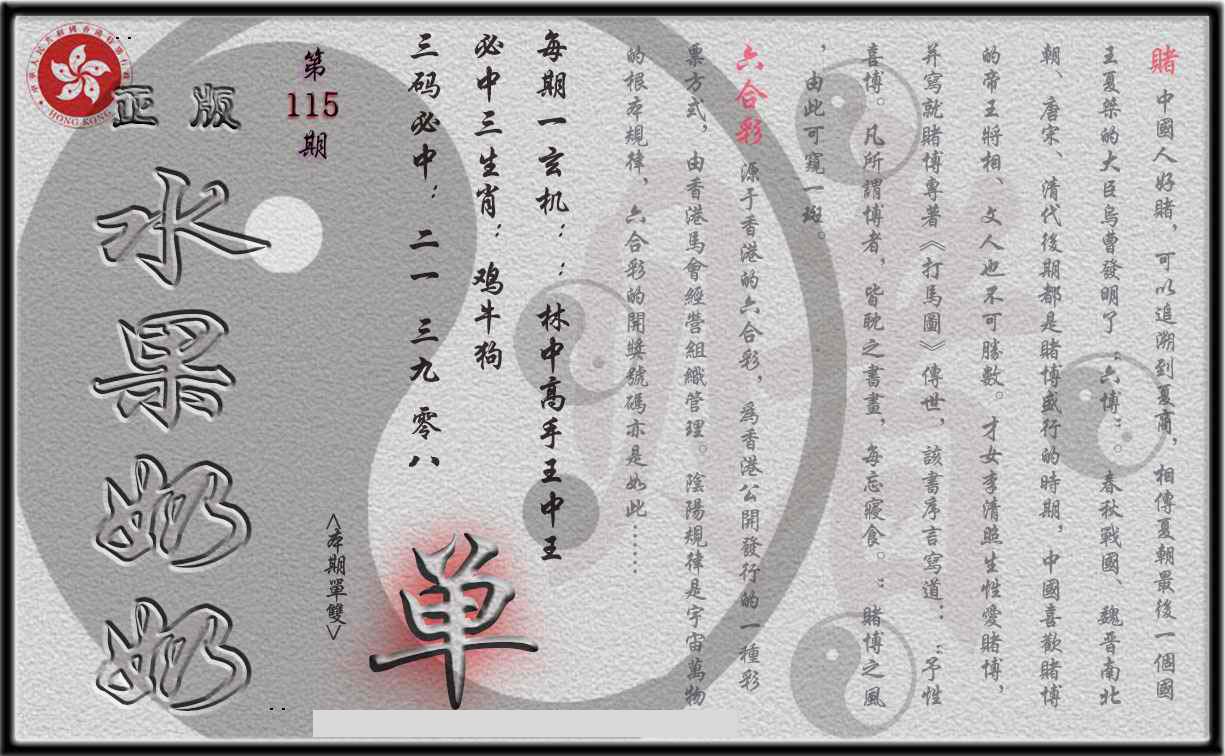 賭 中國人好賭，可以追溯到夏商，相傳夏朝最後一個國
王夏桀的大臣烏曹發明了“六博”。春秋戰國、魏晉南北
朝、唐宋、清代後期都是賭博盛行的時期，中國喜歡賭博
的帝王將相、文人也不可勝數。才女李清照生性愛賭博，
并寫就賭博專著《打馬圖》傳世，該書序言寫道：“予性
喜博。凡所謂博者，皆耽之書畫，每忘寢食。”賭博之風
，由此可窺一斑。
六合彩 源于香港的六合彩，為香港公開發行的一種彩
票方式，由香港馬會經營組織管理。陰陽規律是宇宙萬物
的根本規律，六合彩的開獎號碼亦是如此……
每期一玄机：：林中高手王中王
必中三生肖：鸡牛狗
三码必中：二一 三九 零八
單
<本期單雙>
第
115
期
正版
水果奶奶
HONG KONG